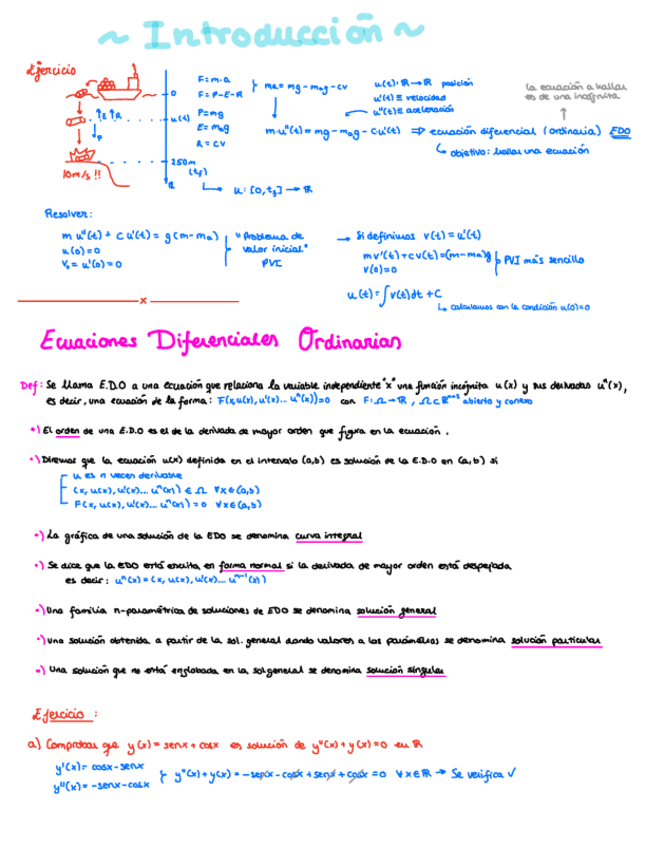 ~ Introducción ~
Ejercicio
F = m·a
F = P-E-R
P = mg
E = m₀g
R = cv
ma = mg - m₀g - cv
u(t): ℝ → ℝ posición
u'(t) ≡ velocidad
u''(t) ≡ aceleración
la ecuación a hallar
es de una incógnita
0
↑E ↑R
u(t)
↓P
250m
(t_f)
10m/s !!
ℝ
m·u''(t) = mg - m₀g - cu'(t) ⇒ ecuación diferencial (ordinaria) EDO
↳ objetivo: hallar una ecuación
u: [0, t_f] → ℝ
Resolver:
m u''(t) + c u'(t) = g(m - m₀)
u(0) = 0
V₀ = u'(0) = 0
"Problema de
valor inicial"
PVI
→ Si definimos v(t) = u'(t)
mv'(t) + cv(t) = (m - m₀)g
v(0) = 0
PVI más sencillo
u(t) = ∫v(t)dt + C
↳ calculamos con la condición u(0) = 0
x
Ecuaciones Diferenciales Ordinarias
Def: Se llama E.D.O a una ecuación que relaciona la variable independiente "x" una función incógnita u(x) y sus derivadas uⁿ(x),
es decir, una ecuación de la forma: F(x, u(x), u'(x)... uⁿ(x)) = 0 con F: Ω → ℝ, Ω ⊂ ℝⁿ⁺² abierto y conexo
•) El orden de una E.D.O es el de la derivada de mayor orden que figura en la ecuación.
•) Diremos que la ecuación u(x) definida en el intervalo (a,b) es solución de la E.D.O en (a,b) si
u es n veces derivable
(x, u(x), u'(x)... uⁿ(x)) ∈ Ω ∀x∈(a,b)
F(x, u(x), u'(x)... uⁿ(x)) = 0 ∀x∈(a,b)
•) La gráfica de una solución de la EDO se denomina curva integral
•) Se dice que la EDO está escrita en forma normal si la derivada de mayor orden está despejada
es decir: uⁿ(x) = (x, u(x), u'(x)... uⁿ⁻¹(x))
•) Una familia n-paramétrica de soluciones de EDO se denomina solución general
•) Una solución obtenida a partir de la sol. general dando valores a los parámetros se denomina solución particular
•) Una solución que no está englobada en la sol general se denomina solución singular
Ejercicio:
a) Comprobar que y(x) = senx + cosx es solución de y''(x) + y(x) = 0 en ℝ
y'(x) = cosx - senx
y''(x) = -senx - cosx
y''(x) + y(x) = -senx - cosx + senx + cosx = 0 ∀x∈ℝ → Se verifica ✓